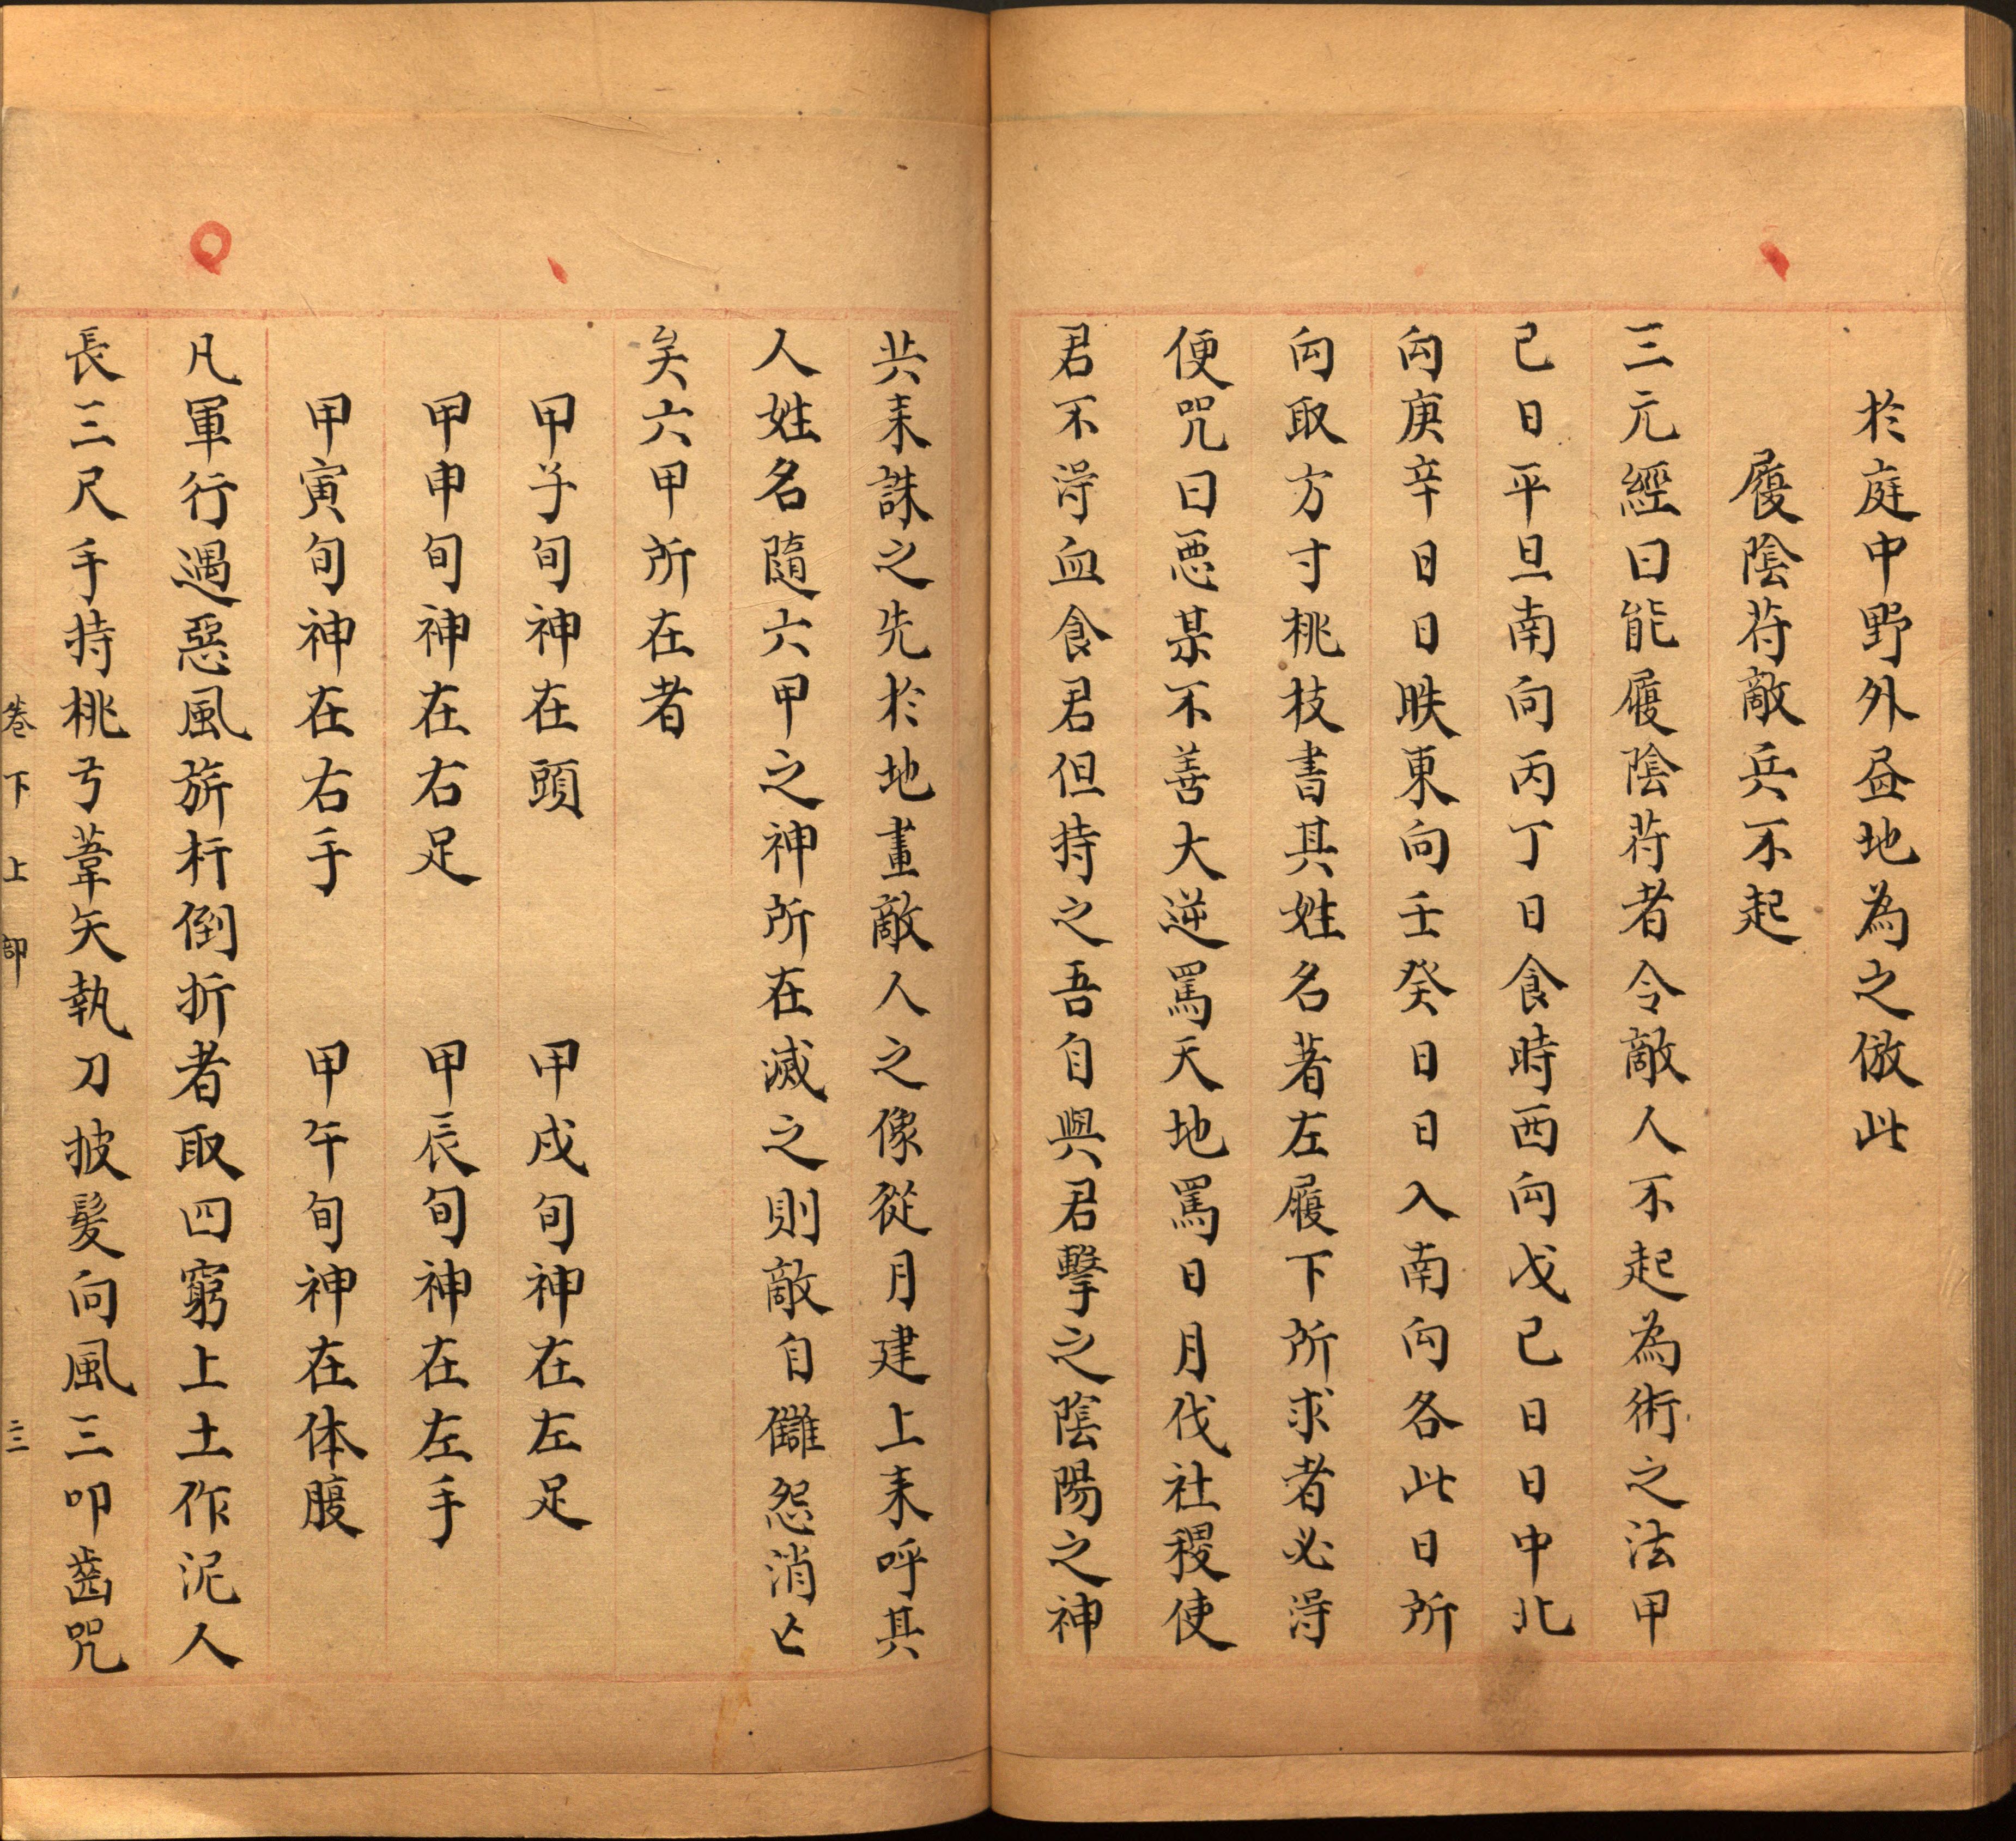 於庭中野外昼地為之倣此
履陰苻敵兵不起
三元經曰能履陰苻者令敵人不起為術之法甲
己日平旦南向丙丁日食時西向戊己日日中北
向庚辛日日昳東向壬癸日日入南向各此日所
向取方寸桃枝書其姓名著左履下所求者必淂
便咒曰惡某不善大逆罵天地罵日月伐社稷使
君不淂血食君但持之吾自與君擊之陰陽之神
共来誅之先於地畫敵人之像從月建上来呼其
人姓名隨六甲之神所在滅之則敵自讎怨消亡
矣六甲所在者
甲子旬神在頭　甲戌旬神在左足
甲申旬神在右足　甲辰旬神在左手
甲寅旬神在右手　甲午旬神在体腹
凡軍行遇惡風旂杆倒折者取四窮上土作泥人
長三尺手持桃弓葦矢執刀披髮向風三叩齒咒
卷下　上部　三